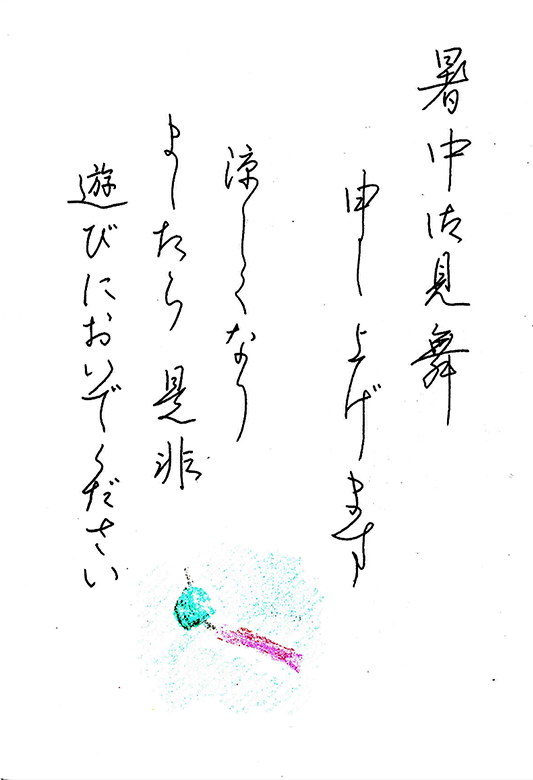 暑中御見舞
申し上げます
涼しくなり
ましたら 是非
遊びにおいでください